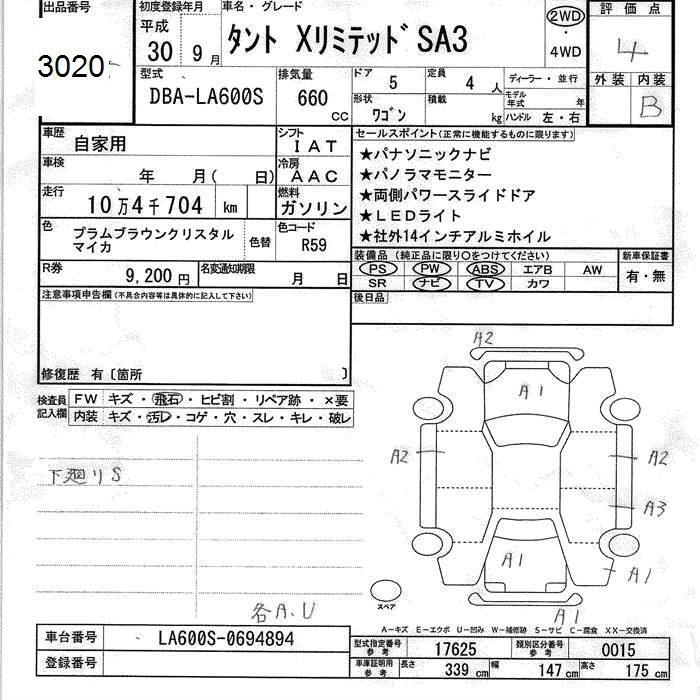 出品番号
3020
初度登録年月
平成
30 9月
車名・グレード
タント XリミテッドSA3
2WD
・
4WD
評価点
4
外装 内装
B
型式
DBA-LA600S
排気量
660 cc
ドア 5
定員 4 人
形状 ワゴン
積載 kg
ディーラー・並行
モデル年式 年
ハンドル 左・右
車歴
自家用
シフト
IAT
車検
年 月( 日)
冷房
AAC
走行
10万4千704 km
燃料
ガソリン
色
プラムブラウンクリスタル
マイカ
色替
色コード
R59
R券
9,200 円
名変通知期限
月 日
セールスポイント(正常に機能するものに限ります)
★パナソニックナビ
★パノラマモニター
★両側パワースライドドア
★LEDライト
★社外14インチアルミホイル
装備品 (純正品に限り○をつけてください)
PS PW ABS エアB AW
SR ナビ TV カワ
新車保証書
有・無
後日品
注意事項申告欄(不具合内容等は具体的に記入して下さい)
修復歴 有〔箇所 〕
検査員
記入欄
FW キズ・飛石・ヒビ割・リペア跡・×要
内装 キズ・汚レ・コゲ・穴・スレ・キレ・破レ
下廻りS
各A.U
A2
A1
A2
A2
A3
A1
A1
A1
スペア
A-キズ E-エクボ U-凹み W-補修跡 S-サビ C-腐食 XX-交換済
車台番号 LA600S-0694894
登録番号
型式指定番号 参考 17625
類別区分番号 参考 0015
車庫証明用 参考 長さ 339 cm 幅 147 cm 高さ 175 cm